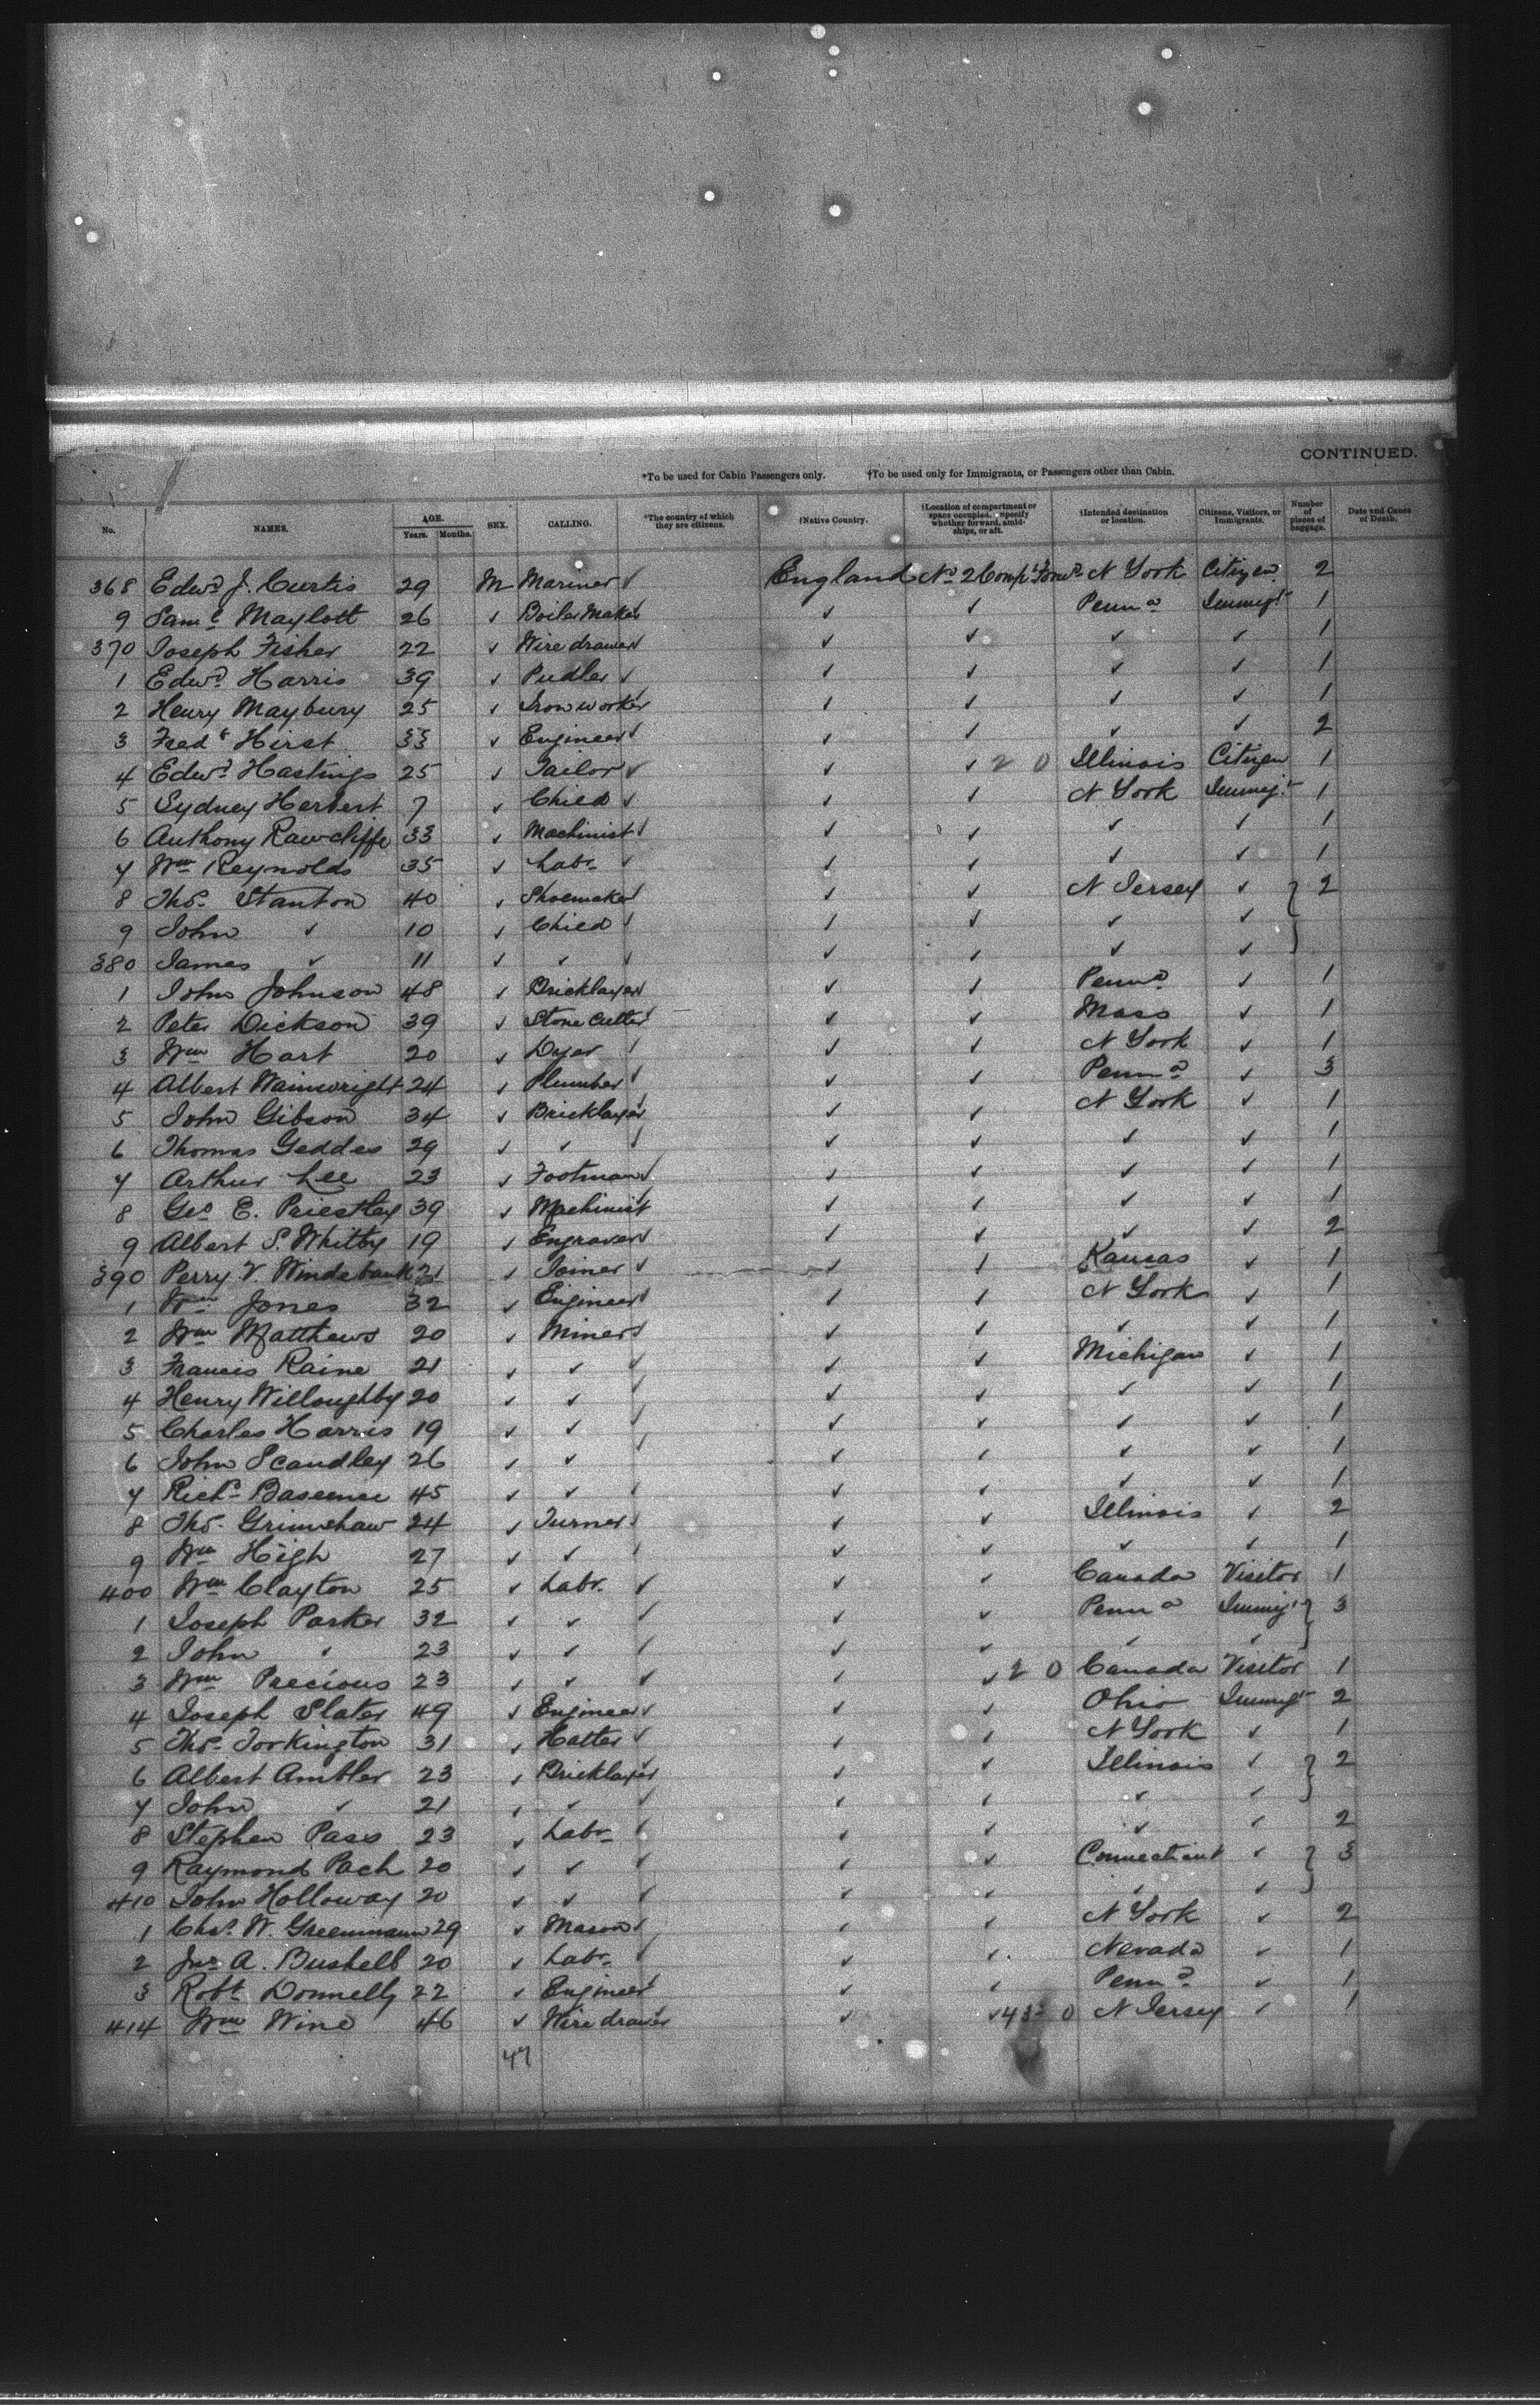 CONTINUED.
*To be used for Cabin Passengers only. †To be used only for Immigrants, or Passengers other than Cabin.
No. NAMES. AGE. Years. Months. SEX. CALLING. *The country of which they are citizens. †Native Country. †Location of compartment or space occupied. Specify whether forward, amidships, or aft. †Intended destination or location. Citizens, Visitors, or Immigrants. Number of pieces of baggage. Date and Cause of Death.
368 Edwd J. Curtis 29 M Mariner ✓ England No 2 Compt Forwd N York Citizen 2
9 Saml Maylott 26 ✓ Boiler Maker ✓ ✓ ✓ Penna Immigt 1
370 Joseph Fisher 22 ✓ Wire drawer ✓ ✓ ✓ ✓ ✓ 1
1 Edwd Harris 39 ✓ Pudler ✓ ✓ ✓ ✓ ✓ 1
2 Henry Maybury 25 ✓ Iron worker ✓ ✓ ✓ ✓ ✓ 1
3 Fredk Hirst 33 ✓ Engineer ✓ ✓ ✓ ✓ ✓ 2
4 Edwd Hastings 25 ✓ Tailor ✓ ✓ ✓ 2 0 Illinois Citizen 1
5 Sydney Herbert 7 ✓ Child ✓ ✓ ✓ N York Immigt 1
6 Anthony Rawcliffe 33 ✓ Machinist ✓ ✓ ✓ ✓ ✓ 1
7 Wm Reynolds 35 ✓ Labr ✓ ✓ ✓ ✓ ✓ 1
8 Thos Stanton 40 ✓ Shoemaker ✓ ✓ ✓ N Jersey ✓ } 2
9 John ✓ 10 ✓ Child ✓ ✓ ✓ ✓ ✓
380 James ✓ 11 ✓ ✓ ✓ ✓ ✓ ✓ ✓
1 John Johnson 48 ✓ Bricklayer ✓ ✓ ✓ Penna ✓ 1
2 Peter Dickson 39 ✓ Stone Cutter ✓ ✓ ✓ Mass ✓ 1
3 Wm Hart 20 ✓ Dyer ✓ ✓ ✓ N York ✓ 1
4 Albert Wainwright 24 ✓ Plumber ✓ ✓ ✓ Penna ✓ 3
5 John Gibson 34 ✓ Bricklayer ✓ ✓ ✓ N York ✓ 1
6 Thomas Geddes 29 ✓ ✓ ✓ ✓ ✓ ✓ ✓ 1
7 Arthur Lee 23 ✓ Footman ✓ ✓ ✓ ✓ ✓ 1
8 Geo E. Priestley 39 ✓ Machinist ✓ ✓ ✓ ✓ 1
9 Albert S. Whitby 19 ✓ Engraver ✓ ✓ ✓ ✓ ✓ 2
390 Perry V. Windebank 21 ✓ Joiner ✓ ✓ ✓ Kansas ✓ 1
1 Wm Jones 32 ✓ Engineer ✓ ✓ ✓ N York ✓ 1
2 Wm Matthews 20 ✓ Miner ✓ ✓ ✓ ✓ ✓ 1
3 Francis Raine 21 ✓ ✓ ✓ ✓ ✓ Michigan ✓ 1
4 Henry Willoughby 20 ✓ ✓ ✓ ✓ ✓ ✓ ✓ 1
5 Charles Harris 19 ✓ ✓ ✓ ✓ ✓ ✓ ✓ 1
6 John Scandley 26 ✓ ✓ ✓ ✓ ✓ ✓ ✓ 1
7 Richd 45 ✓ ✓ ✓ ✓ ✓ ✓ ✓ 1
8 Thos Grimshaw 24 ✓ Turner ✓ ✓ ✓ Illinois ✓ 2
9 Wm High 27 ✓ ✓ ✓ ✓ ✓ ✓ ✓ 1
400 Wm Clayton 25 ✓ Labr. ✓ ✓ ✓ Canada Visitor 1
1 Joseph Parker 32 ✓ ✓ ✓ ✓ ✓ Penna Immigt } 3
2 John ✓ 23 ✓ ✓ ✓ ✓ ✓ ✓ ✓
3 Wm Precious 23 ✓ ✓ ✓ ✓ ✓ 2 0 Canada Visitor 1
4 Joseph Slater 49 ✓ Engineer ✓ ✓ ✓ Ohio Immigt 2
5 Thos Torkington 31 ✓ Hatter ✓ ✓ ✓ N York ✓ 1
6 Albert Ambler 23 ✓ Bricklayer ✓ ✓ ✓ Illinois ✓ } 2
7 John ✓ 21 ✓ ✓ ✓ ✓ ✓ ✓ ✓
8 Stephen Pass 23 ✓ Labr ✓ ✓ ✓ ✓ ✓ 2
9 Raymond Pach 20 ✓ ✓ ✓ ✓ ✓ Connecticut ✓ } 3
410 John Holloway 20 ✓ ✓ ✓ ✓ ✓ ✓ ✓
1 Chas. W. Greenmann 29 ✓ Mason ✓ ✓ ✓ N York ✓ 2
2 Jno A. Bushell 20 ✓ Labr ✓ ✓ ✓ Nevada ✓ 1
3 Robt Donnelly 22 ✓ Engineer ✓ ✓ ✓ Penna ✓ 1
414 Wm Wind 46 ✓ Wire drawer ✓ ✓ ✓ 43 0 N Jersey ✓ 1
47